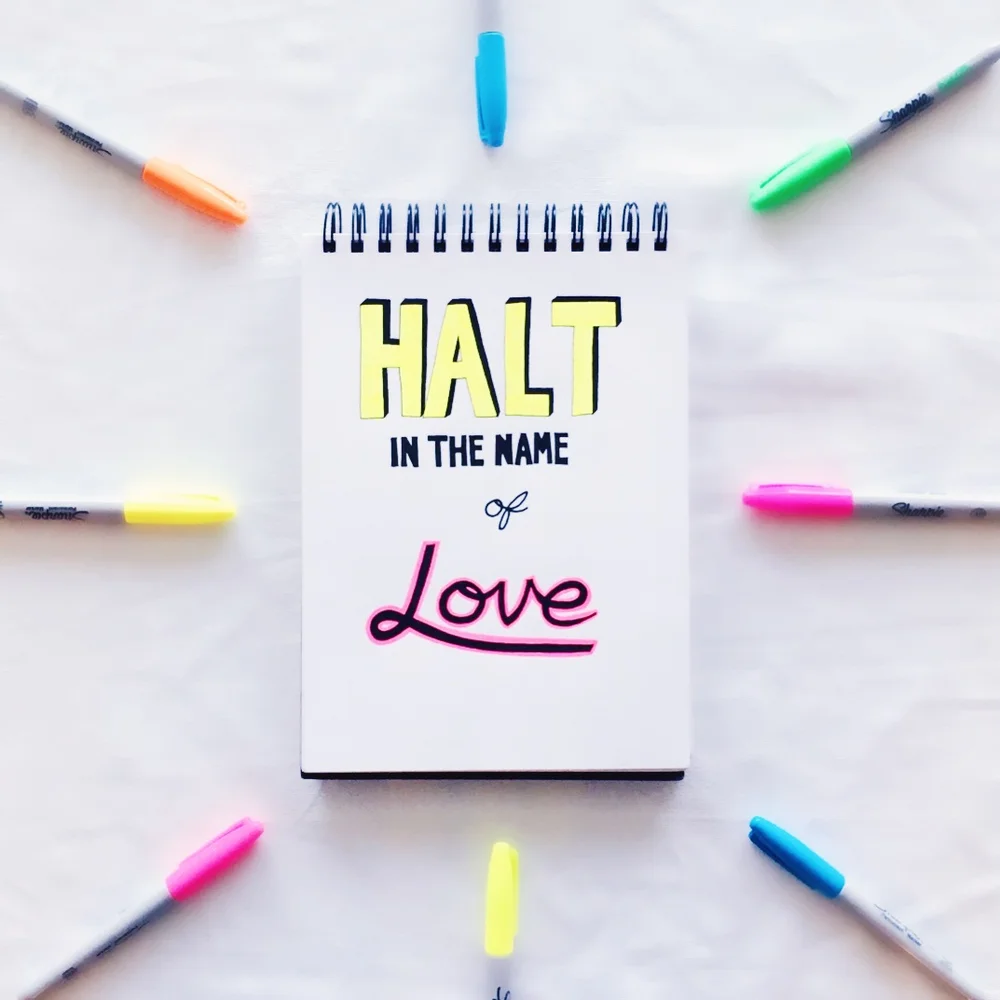 HALT
IN THE NAME
of
Love
Sharpie
Sharpie
Sharpie
Sharpie